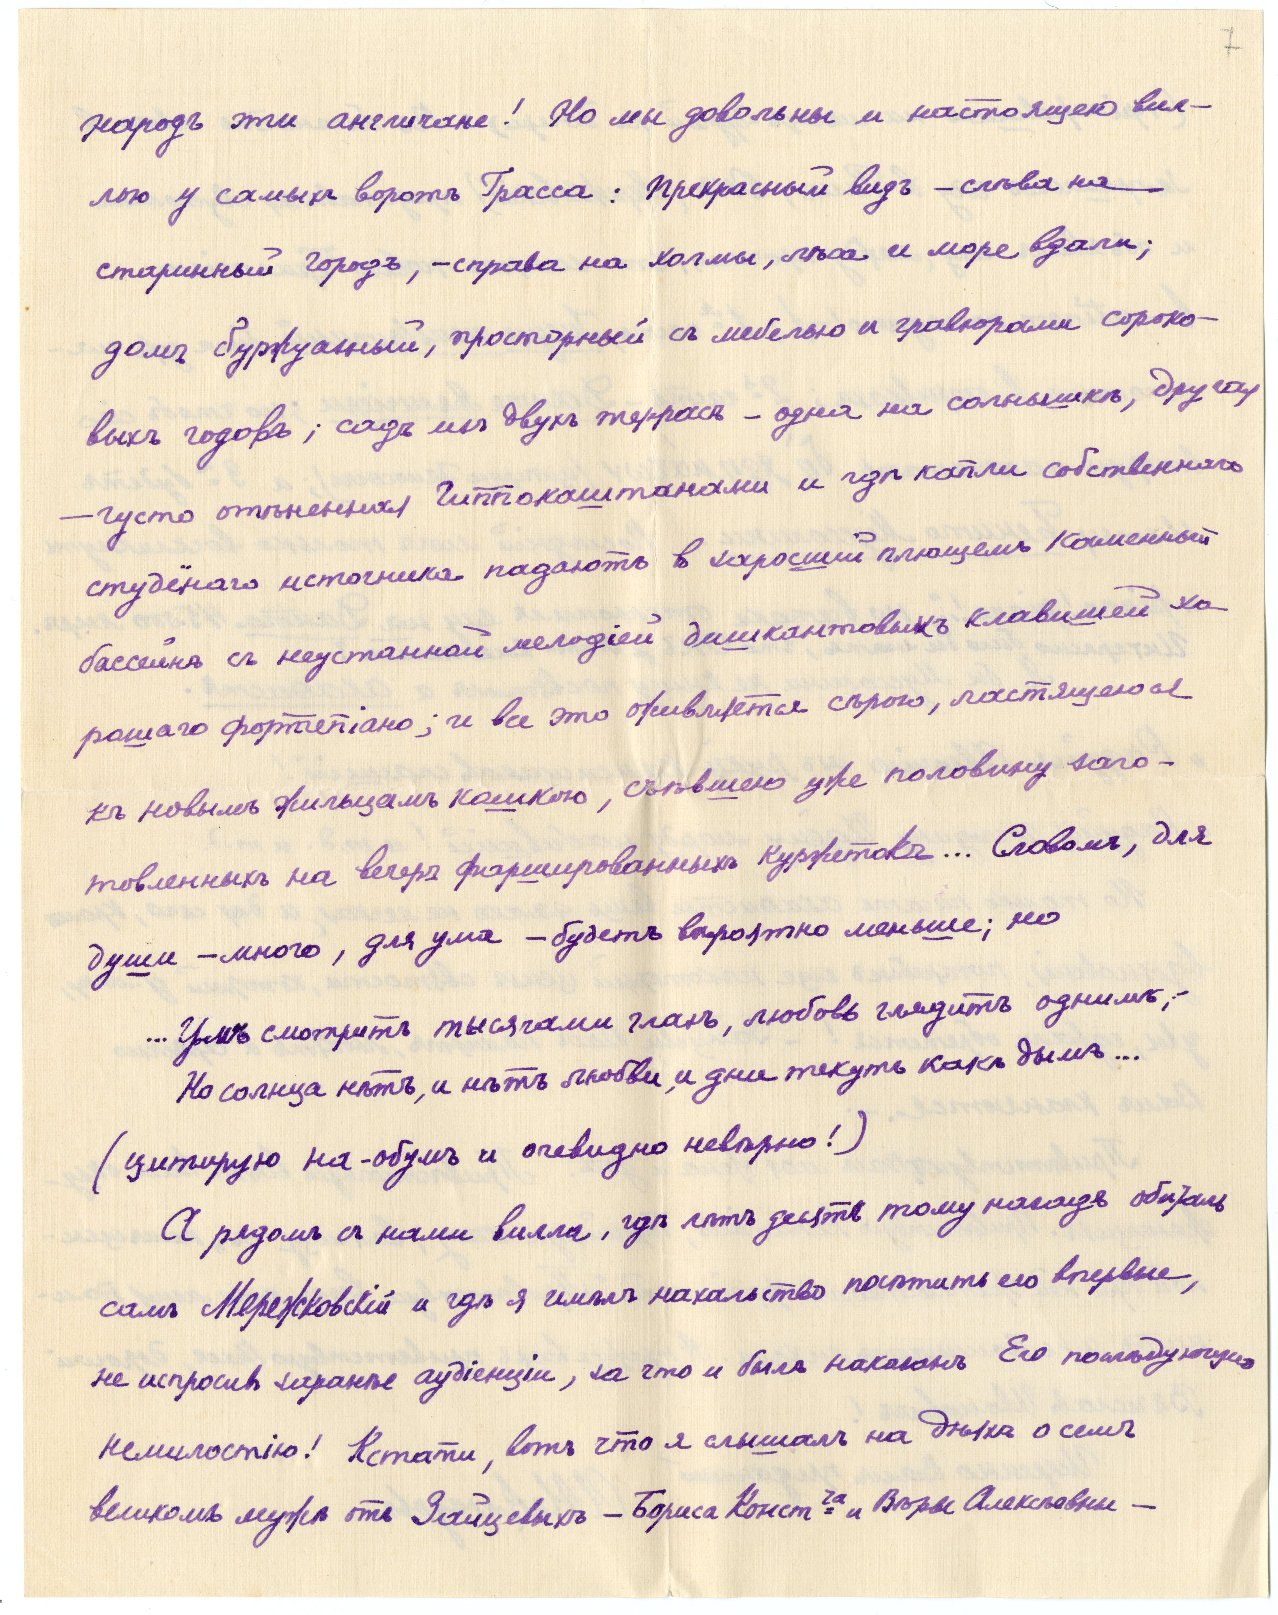 7
народъ эти англичане! Но мы довольны и настоящею вил-
лою у самыхъ воротъ Грасса: прекрасный видъ – слѣва на
старинный городъ, – справа на холмы, лѣса и море вдали;
домъ буржуазный, просторный съ мебелью и гравюрами сороко-
выхъ годовъ; садъ изъ двухъ террасъ – одна на солнышкѣ, другая
– густо отѣненная гиппокаштанами и гдѣ капли собственнаго
студёнаго источника падаютъ в заросшій плющемъ каменный
бассейнъ съ неустанной мелодіей дишкантовыхъ клавишей хо
рошаго фортепіано; и все это оживляется сѣрою, ластящеюся
къ новымъ жильцамъ кошкою, съѣвшею уже половину заго-
товленныхъ на вечеръ фаршированныхъ куржетокъ... Словомъ, для
души – много, для ума – будетъ вѣроятно меньше; но
... Умъ смотритъ тысячами глазъ, любовь глядитъ однимъ; –
Но солнца нѣтъ, и нѣтъ любви, и дни текутъ какъ дымъ...
(цитирую на-обумъ и очевидно невѣрно!)
А рядомъ съ нами вилла, гдѣ лѣтъ десять тому назадъ обиталъ
самъ Мережковскій и гдѣ я имѣлъ нахальство посѣтить его впервые,
не испросивъ заранѣе аудіенціи, за что и былъ наказанъ Его послѣдующею
немилостію! Кстати, вотъ что я слышалъ на дняхъ о семъ
великомъ мужѣ отъ Зайцевыхъ – Бориса Конст–ча и Вѣры Алексѣевны –